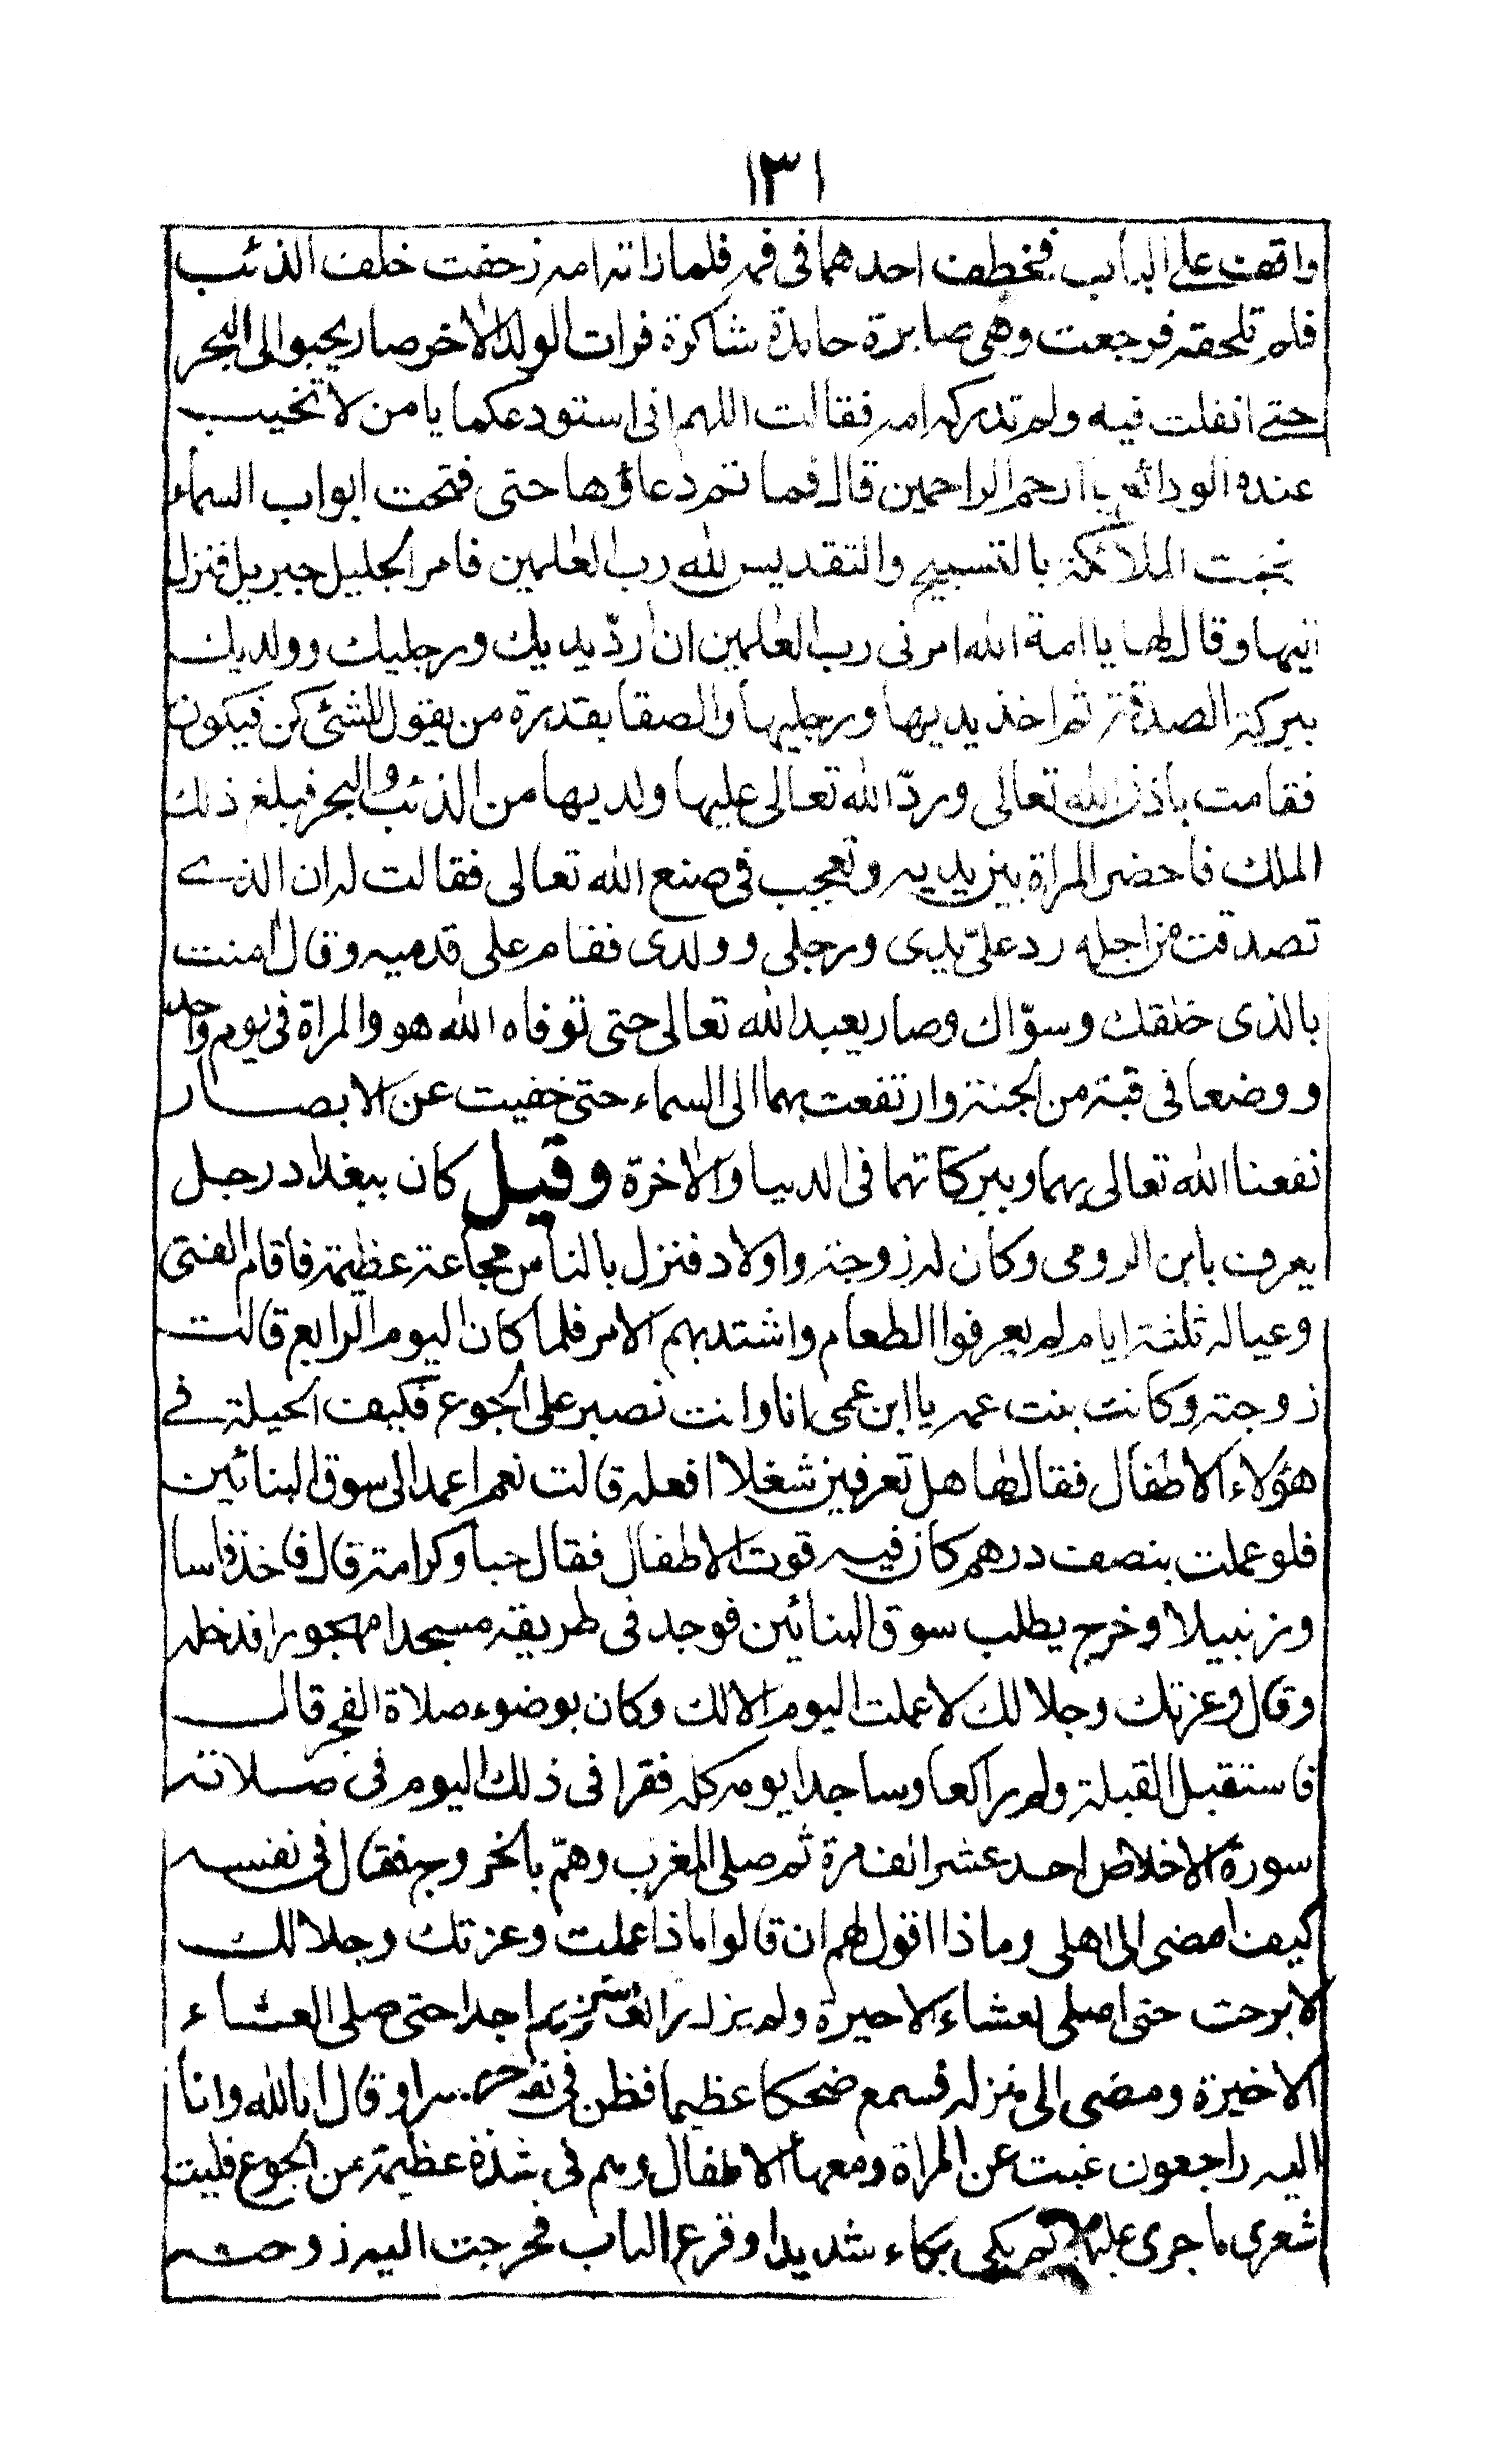 ١٣١
واقف على الباب فخطف احدهما فى فمه فلما راته امه زحفت خلف الذئب
فلم تلحقه فرجعت وهى صابرة حامدة شاكرة فرات الولد الاخر صار يحبو الى البحر
حتى انفلت فيه ولم تدركه امه فقالت اللهم انى استودعكما يا من لا تخيب
عنده الودائع يا ارحم الراحمين قال فما تم دعاؤها حتى فتحت ابواب السماء
الملائكة بالتسبيح والتقديس لله رب العلمين فامر الجليل جبريل فنزل
اليها وقال لها يا امة الله امرنى رب العلمين ان ارد يديك ورجليك وولديك
ببركة الصدقة ثم اخذ يديها ورجليها والصقا بقدرة من يقول للشئ كن فيكون
فقامت باذن الله تعالى وردّ الله تعالى عليها ولديها من الذئب والبحر فبلغ ذلك
الملك فاحضر المراة بين يديه وتعجب فى صنع الله تعالى فقالت له ان الذى
تصدقت من اجله رد علىّ يدى ورجلى وولدى فقام على قدميه وقال امنت
بالذى خلقك وسوّاك وصار يعبد الله تعالى حتى توفاه الله هو والمراة فى يوم واحد
ووضعا فى قبة من الجنة وارتفعت بهما الى السماء حتى خفيت عن الابصار
نفعنا الله تعالى بهما وببركاتهما فى الدنيا والاخرة وقيل كان ببغداد رجل
يعرف بابن الرومى وكان له زوجة واولاد فنزل بالناس مجاعة عظيمة فاقام الفتى
وعياله ثلثة ايام لم يعرفوا الطعام واشتد بهم الامر فلما كان اليوم الرابع قالت
زوجته وكانت بنت عمه يا ابن عمى انا وانت نصبر على الجوع فكيف الحيلة فى
هؤلاء الاطفال فقال لها هل تعرفين شغلا افعله قالت نعم اعمد الى سوق البنائين
فلو عملت بنصف درهم كان فيه قوت الاطفال فقال حبا وكرامة قال فاخذ فاسا
وزنبيلا وخرج يطلب سوق البنائين فوجد فى طريقه مسجدا مهجورا فدخله
وقال وعزتك وجلالك لا عملت اليوم الا لك وكان بوضوء صلاة الفجر قال
فاستقبل القبلة ولم راكعا وساجدا يومه كله فقرا فى ذلك اليوم فى صلاته
سورة الاخلاص احد عشر الف مرة ثم صلى المغرب وهمّ بالخروج فقال فى نفسه
كيف امضى الى اهلى وماذا اقول لهم ان قالوا ماذا عملت وعزتك وجلالك
لا برحت حتى اصلى لعشاء الاخيرة ولم يزل اجدا حتى صلى العشاء
الاخيرة ومضى الى منزله فسمع ضحكا عظيما فظن فى وقال انا لله وانا
اليه راجعون غبت عن المراة ومعها الاطفال وهم فى شدة عظيمة من الجوع فليت
شعرى ما جرى يبكى بكاء شديدا وقرع الباب فخرجت اليه زوجته